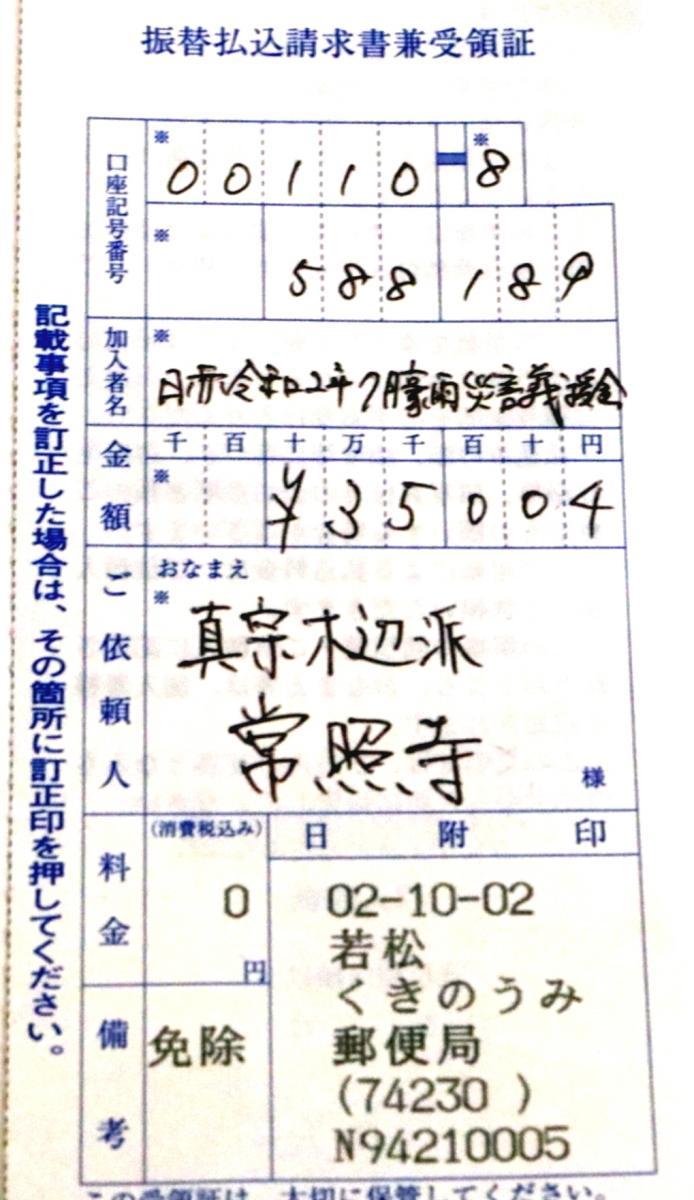 振替払込請求書兼受領証
口座記号番号
※ 00110-※8
※ 588189
加入者名
※ 日赤令和2年7月豪雨災害義援金
金額
千 百 十 万 千 百 十 円
※ ¥35004
ご依頼人
おなまえ
※
真宗木辺派
常照寺
様
料金
(消費税込み)
0
円
備考
免除
日 附 印
02-10-02
若松
くきのうみ
郵便局
(74230 )
N94210005
記載事項を訂正した場合は、その箇所に訂正印を押してください。
この受領証は、大切に保管してください。